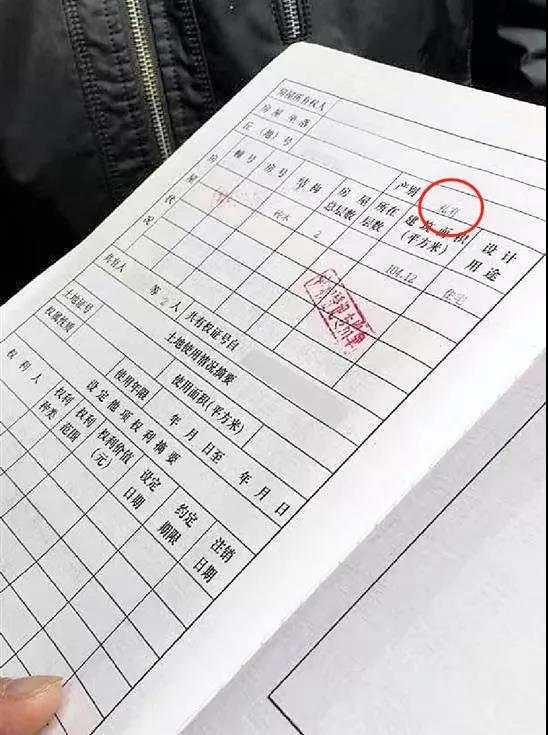 房屋所有权人
房屋坐落
丘(地)号 产别 私有
房屋状况 幢号 房号 结构 房屋总层数 所在层数 建筑面积(平方米) 设计用途
砖木 2 104.12 住宅
共有人 等2人 共有权证号自
土地使用情况摘要
土地证号 使用面积(平方米)
权属性质 使用年限 年 月 日至 年 月 日
设定他项权利摘要
权利人 权利种类 权利范围 权利价值(元) 设定日期 约定期限 注销日期